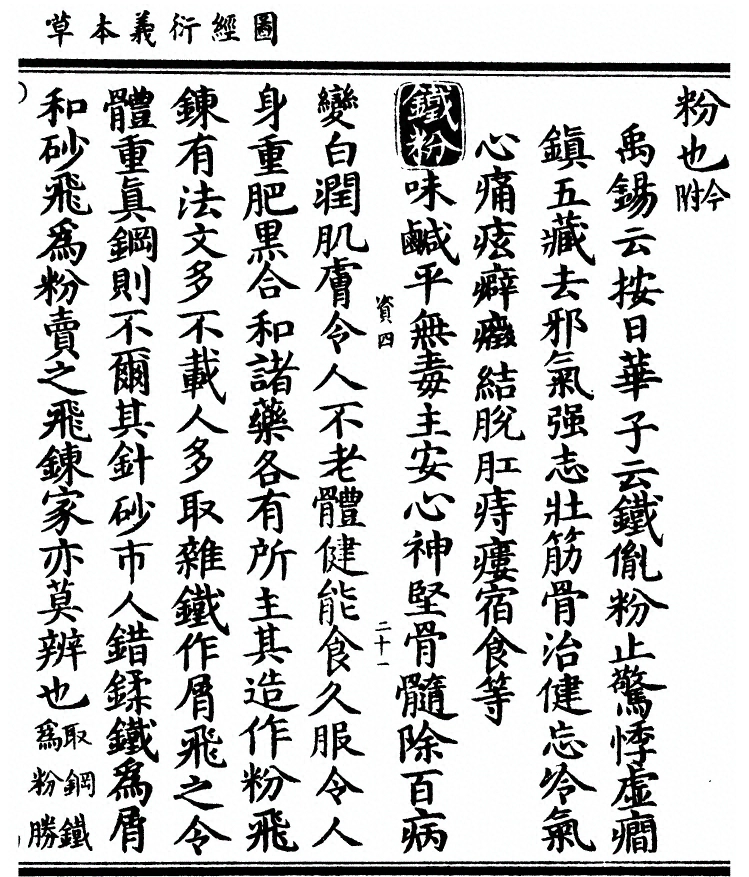 圖經衍義本草
粉也今附
禹錫云按日華子云鐵胤粉止驚悸虛癇
鎮五藏去邪氣强志壯筋骨治健忘冷氣
心痛痃癖癥結脫肛痔瘻宿食等
鐵粉味鹹平無毒主安心神堅骨髓除百病
資四 二十一
變白潤肌膚令人不老體健能食久服令人
身重肥黑合和諸藥各有所主其造作粉飛
鍊有法文多不載人多取雜鐵作屑飛之令
體重眞鋼則不爾其針砂市人錯鍒鐵爲屑
和砂飛爲粉賣之飛鍊家亦莫辨也取鋼鐵爲粉勝